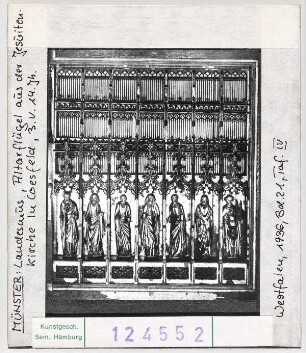 MÜNSTER: Landesmus. Altarflügel aus der Jesuiten-
kirche in Coesfeld, 3. V. 14. Jh.
Westfalen, 1936, Bd. 21, Taf. IV
Kunstgesch.
Sem. Hamburg
124552